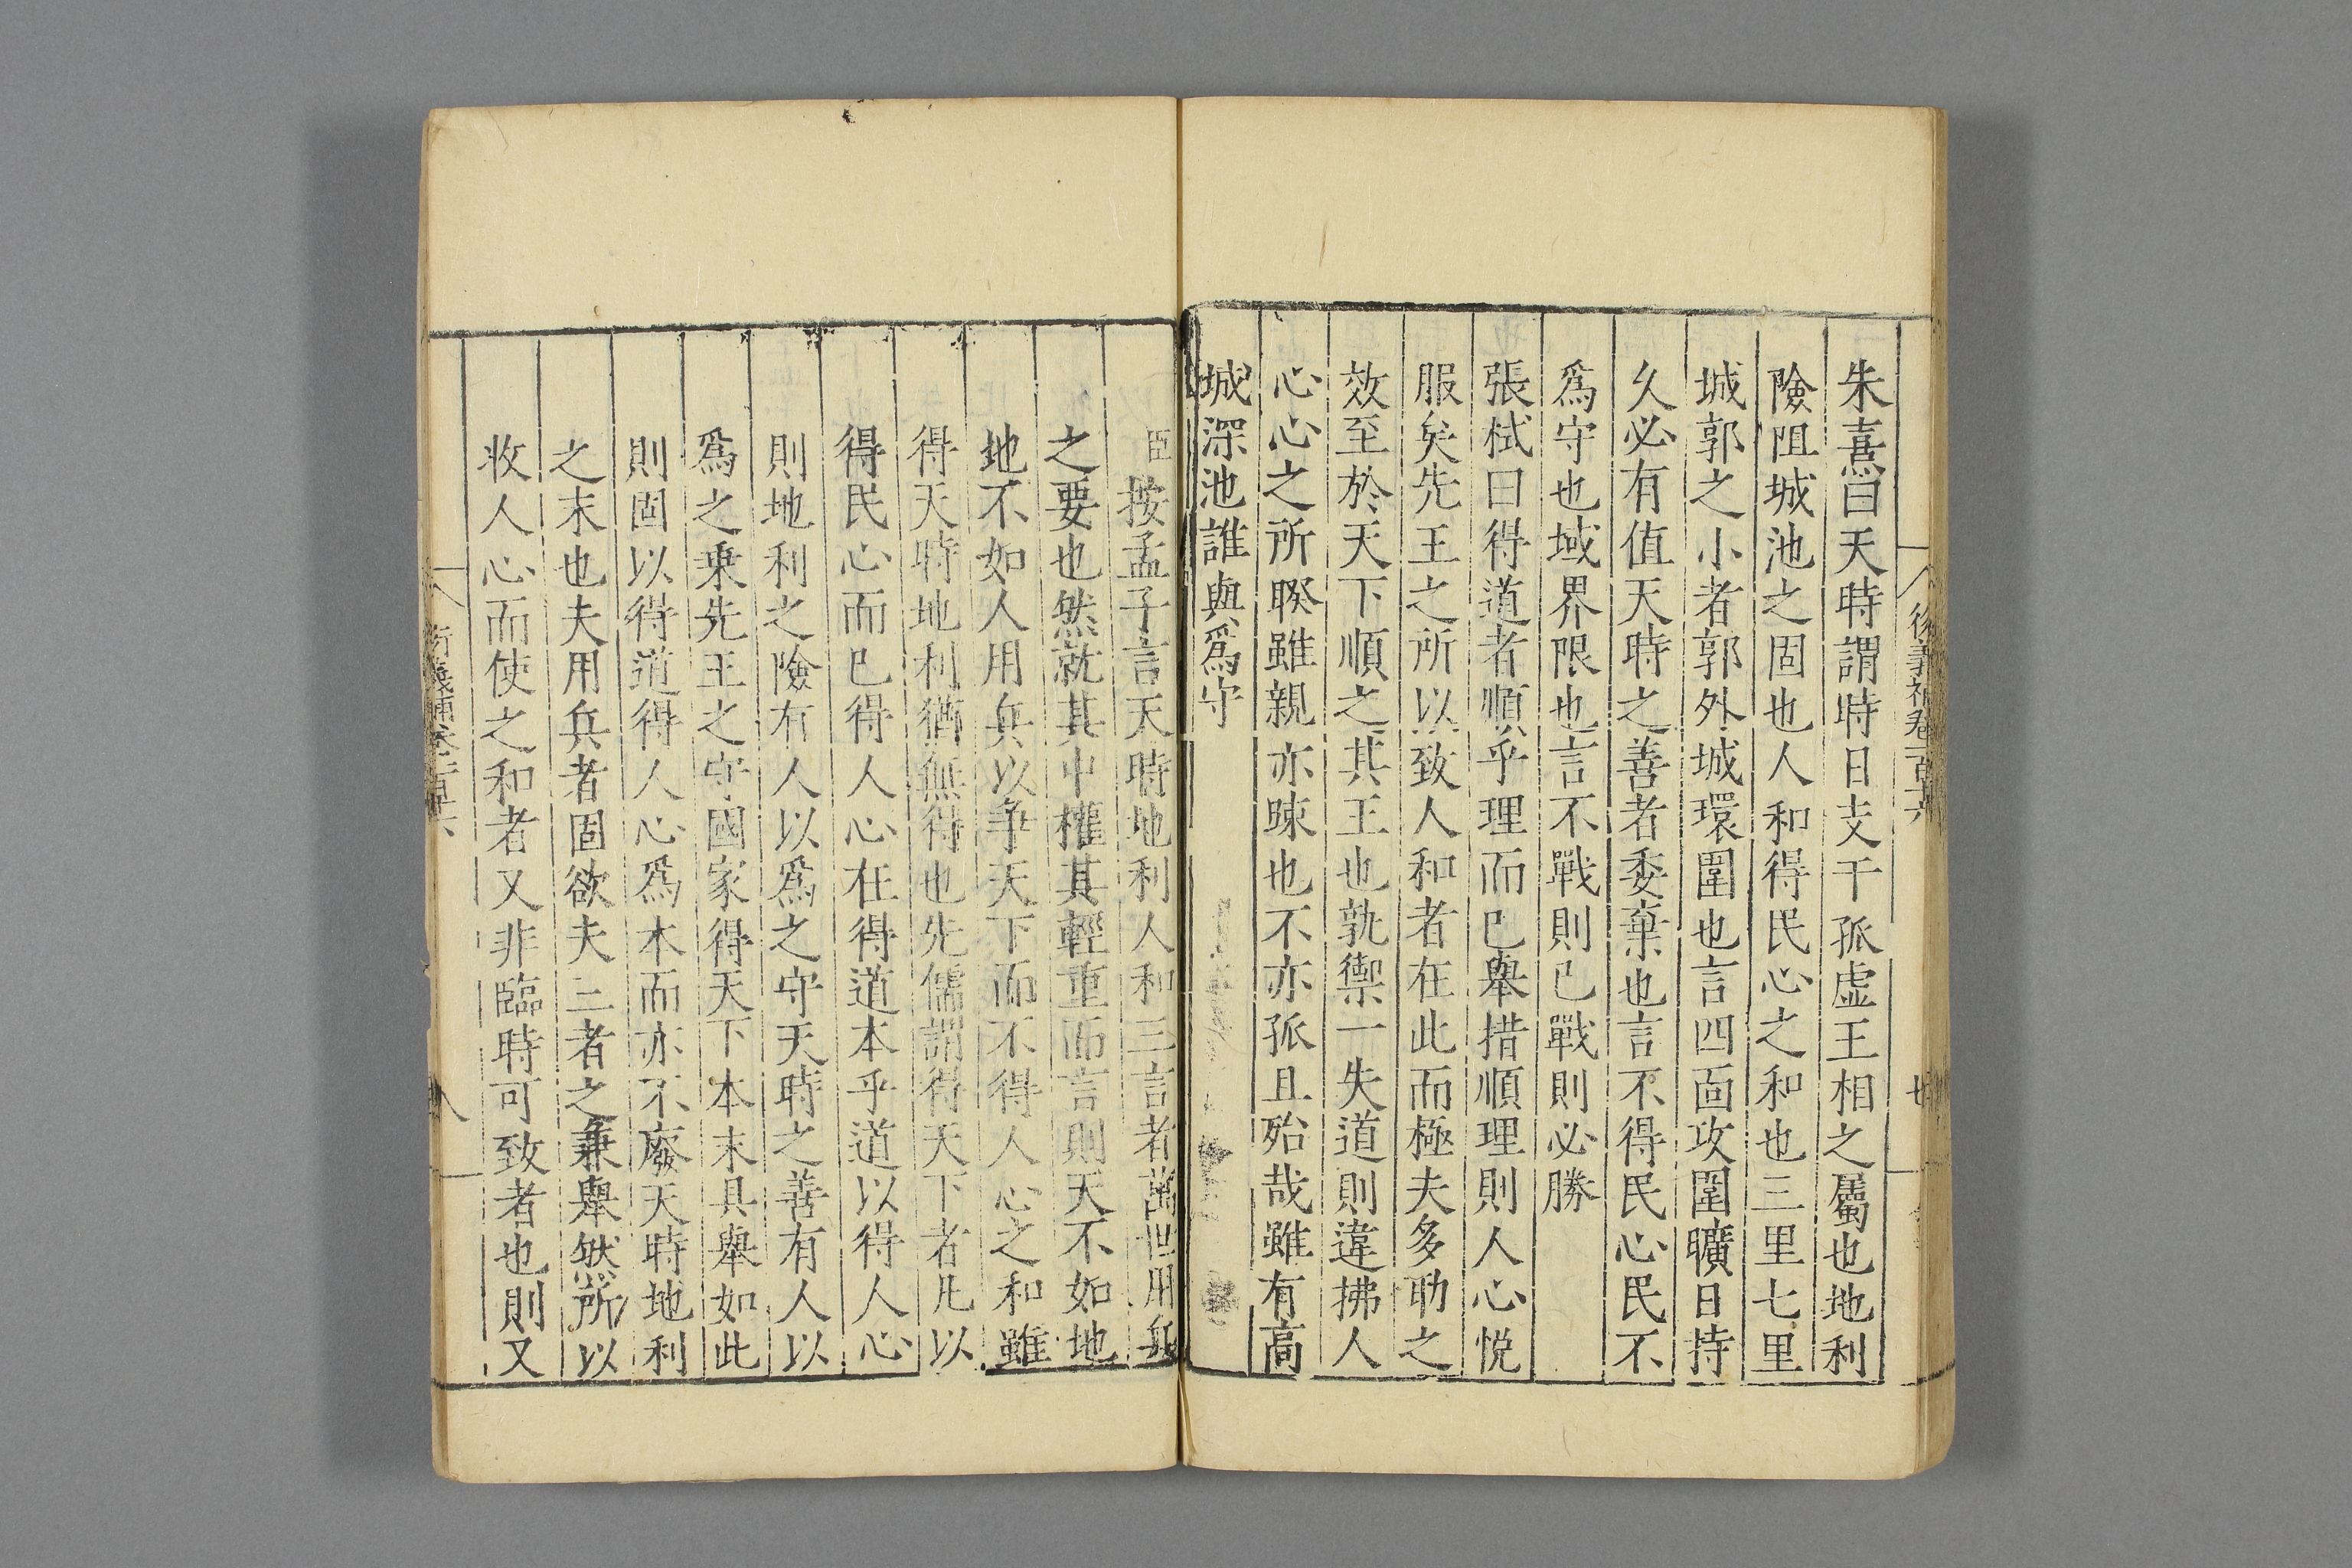 朱熹曰天時謂時日支干孤虛王相之屬也地利
險阻城池之固也人和得民心之和也三里七里
城郭之小者郭外城環圍也言四面攻圍曠日持
久必有值天時之善者委棄也言不得民心民不
爲守也域界限也言不戰則已戰則必勝
張栻曰得道者順乎理而已舉措順理則人心悅
服矣先王之所以致人和者在此而極夫多助之
效至於天下順之其王也孰禦一失道則違拂人
心心之所睽雖親亦踈也不亦孤且殆哉雖有高
城深池誰與爲守
臣按孟子言天時地利人和三言者萬世用兵
之要也然就其中權其輕重而言則天不如地
地不如人用兵以爭天下而不得人心之和雖
得天時地利猶無得也先儒謂得天下者凡以
得民心而已得人心在得道本乎道以得人心
則地利之險有人以爲之守天時之善有人以
爲之乗先王之守國家得天下本末具舉如此
則固以得道得人心爲本而亦不廢天時地利
之末也夫用兵者固欲夫三者之兼舉然所以
收人心而使之和者又非臨時可致者也則又
八